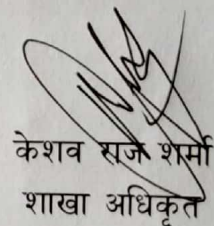 केशव राज शर्मा
शाखा अधिकृत